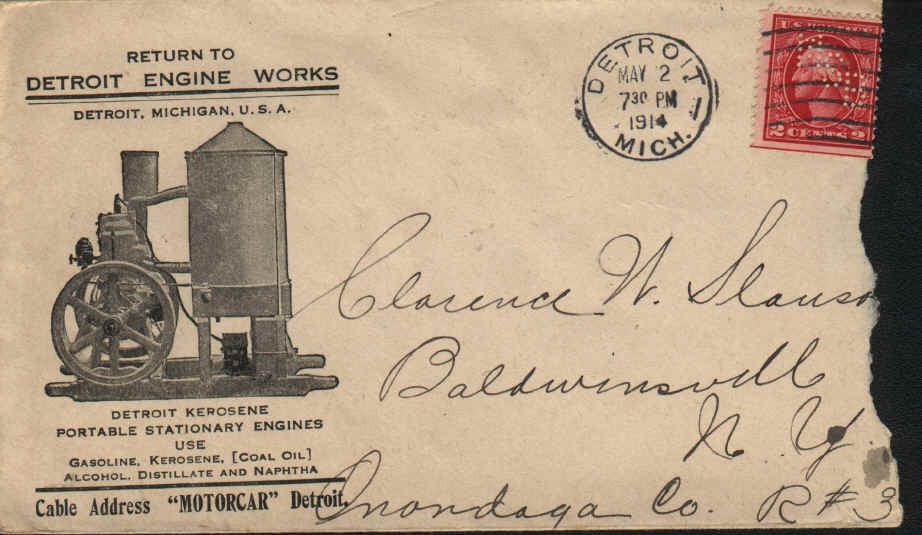 RETURN TO
DETROIT ENGINE WORKS
DETROIT, MICHIGAN, U.S.A.
DETROIT
MAY 2
7 30 PM
1914
MICH.
2 CENTS 2
Clarence W. Slauso
Baldwinsvill
N Y.
Onondaga Co. R # 3
DETROIT KEROSENE
PORTABLE STATIONARY ENGINES
USE
GASOLINE, KEROSENE, [COAL OIL]
ALCOHOL, DISTILLATE AND NAPHTHA
Cable Address "MOTORCAR" Detroit.